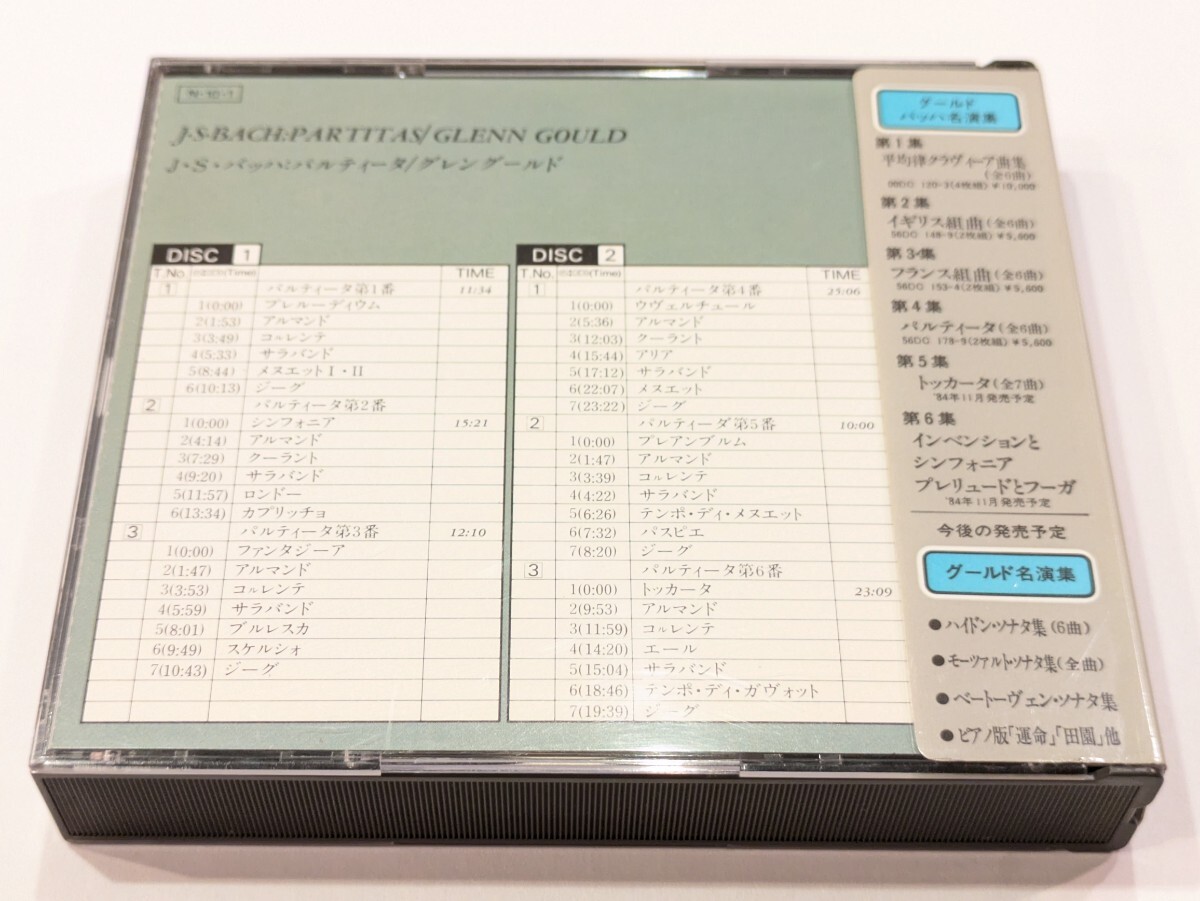 J·S·BACH:PARTITAS/GLENN GOULD
J・S・バッハ:パルティータ/グレングールド
DISC 1
T.No. (Time) TIME
1 パルティータ第1番 11:34
1(0:00) プレルーディウム
2(1:53) アルマンド
3(3:49) コルレンテ
4(5:33) サラバンド
5(8:44) メヌエットI・II
6(10:13) ジーグ
2 パルティータ第2番
1(0:00) シンフォニア 15:21
2(4:14) アルマンド
3(7:29) クーラント
4(9:20) サラバンド
5(11:57) ロンドー
6(13:34) カプリッチョ
3 パルティータ第3番 12:10
1(0:00) ファンタジーア
2(1:47) アルマンド
3(3:53) コルレンテ
4(5:59) サラバンド
5(8:01) ブルレスカ
6(9:49) スケルシォ
7(10:43) ジーグ
DISC 2
T.No. (Time) TIME
1 パルティータ第4番 25:06
1(0:00) ウヴェルチュール
2(5:36) アルマンド
3(12:03) クーラント
4(15:44) アリア
5(17:12) サラバンド
6(22:07) メヌエット
7(23:22) ジーグ
2 パルティータ第5番 10:00
1(0:00) プレアンブルム
2(1:47) アルマンド
3(3:39) コルレンテ
4(4:22) サラバンド
5(6:26) テンポ・ディ・メヌエット
6(7:32) パスピエ
7(8:20) ジーグ
3 パルティータ第6番
1(0:00) トッカータ 23:09
2(9:53) アルマンド
3(11:59) コルレンテ
4(14:20) エール
5(15:04) サラバンド
6(18:46) テンポ・ディ・ガヴォット
7(19:39) ジーグ
グールド
バッハ名演集
第1集
平均律クラヴィーア曲集
(全6曲)
00DC 120-3(4枚組) ¥10,000
第2集
イギリス組曲(全6曲)
56DC 148-9(2枚組) ¥5,600
第3集
フランス組曲(全6曲)
56DC 153-4(2枚組) ¥5,600
第4集
パルティータ(全6曲)
56DC 178-9(2枚組) ¥5,600
第5集
トッカータ(全7曲)
'84年11月発売予定
第6集
インベンションと
シンフォニア
プレリュードとフーガ
'84年11月発売予定
今後の発売予定
グールド名演集
●ハイドン・ソナタ集(6曲)
●モーツァルト・ソナタ集(全曲)
●ベートーヴェン・ソナタ集
●ピアノ版「運命」「田園」他